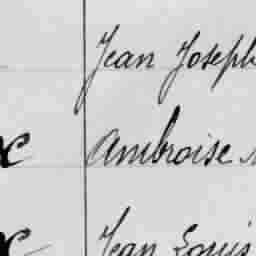 Jean Joseph
Ambroise
Jean Louis